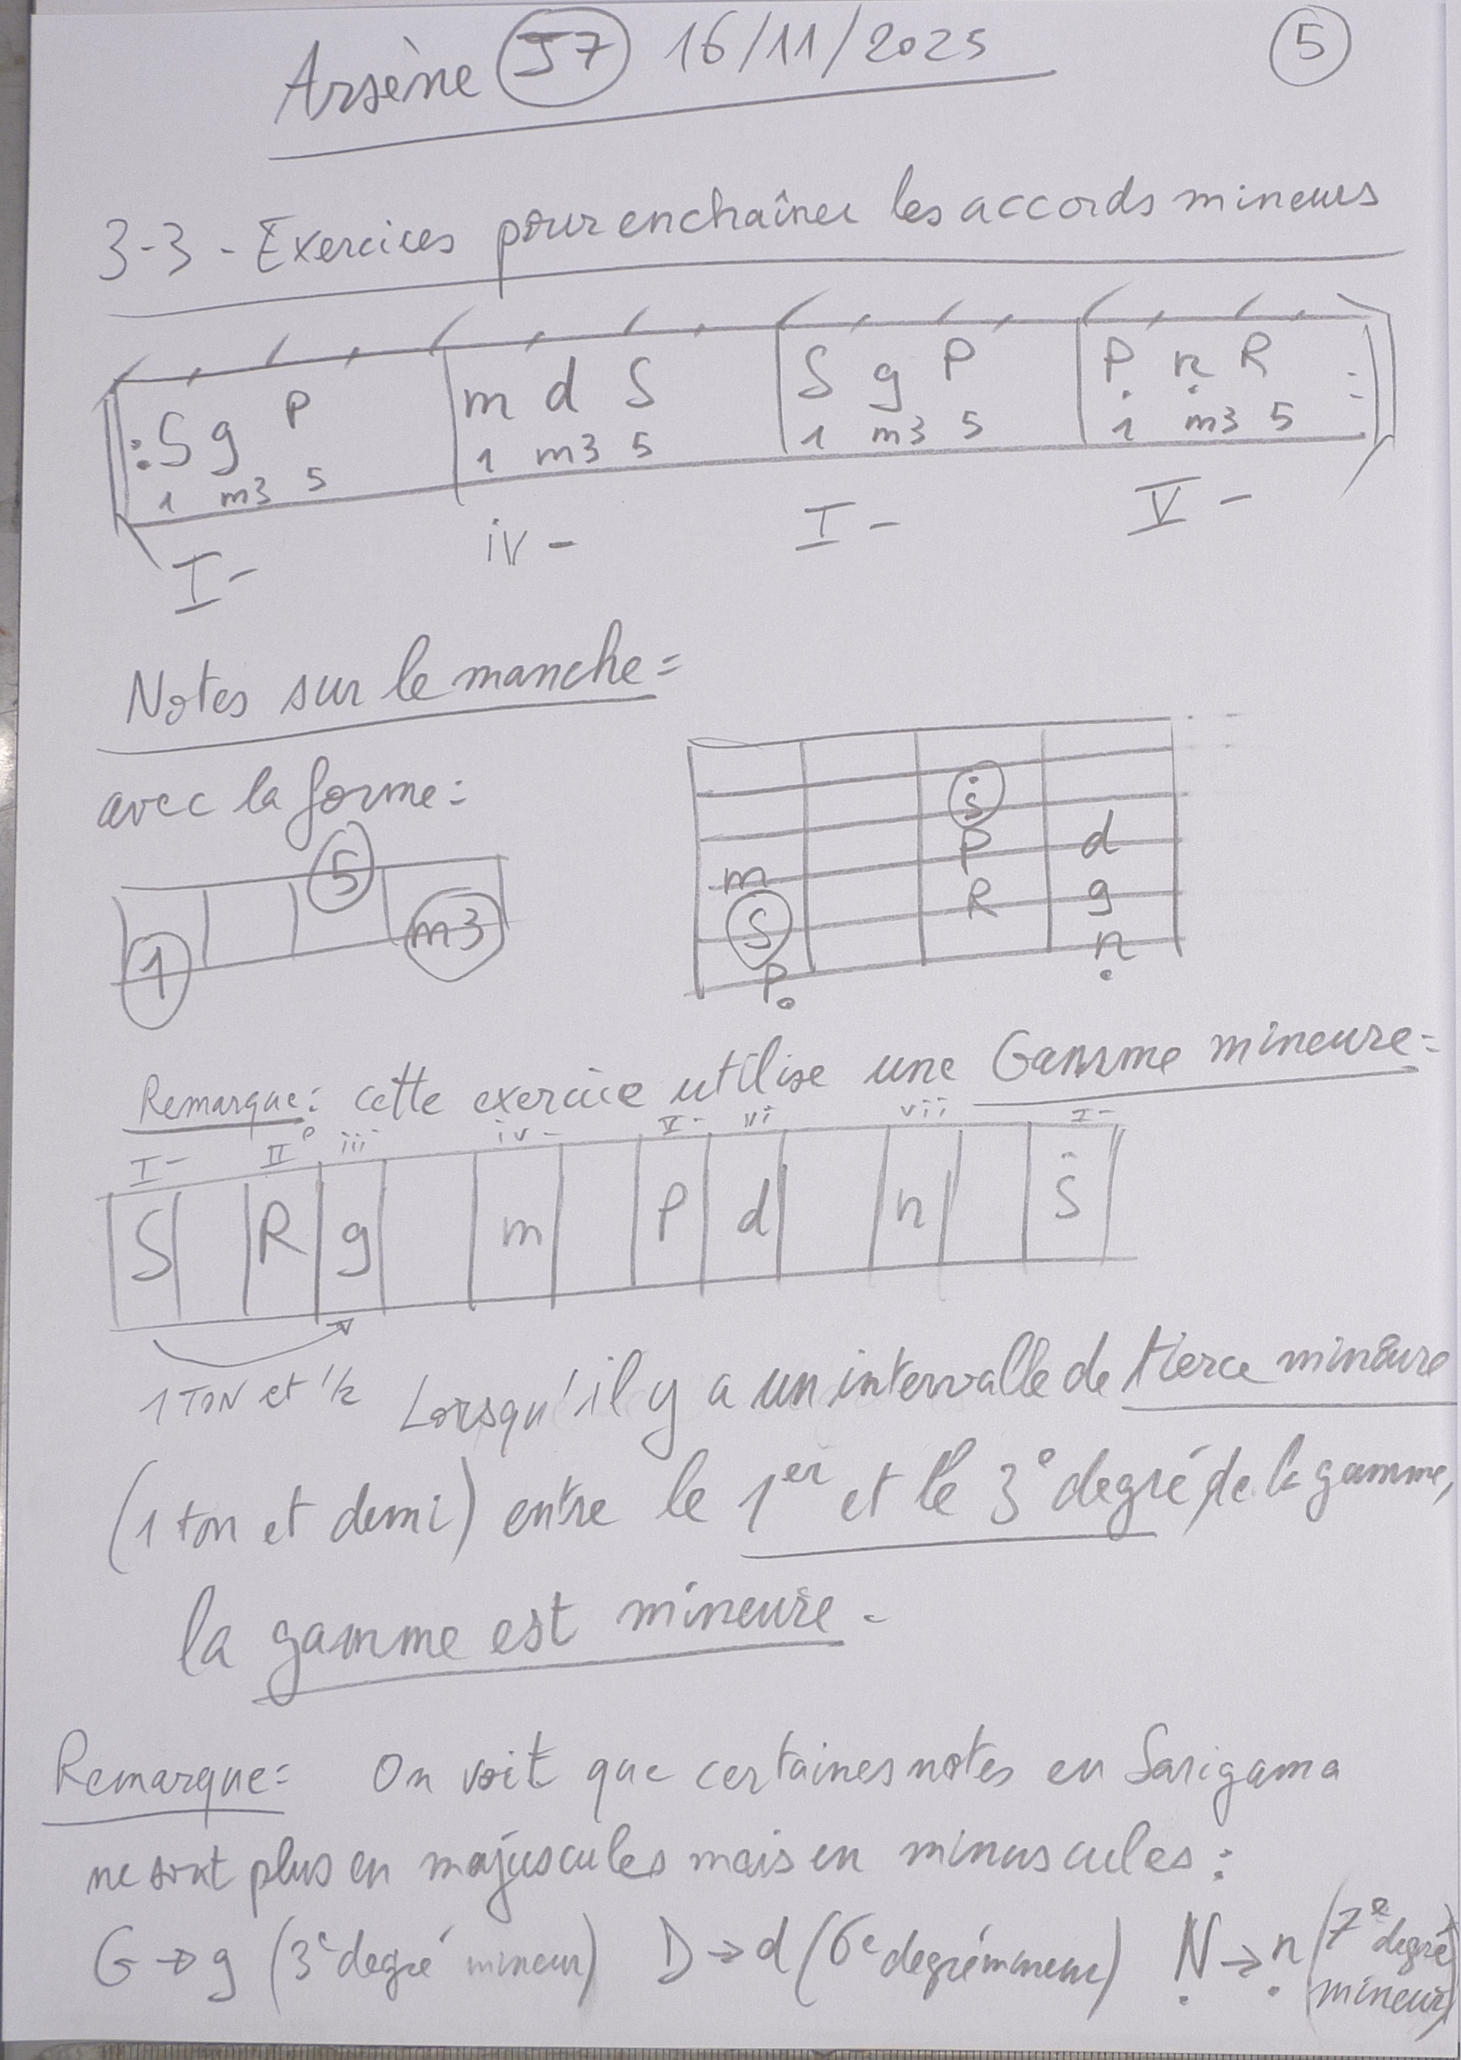 Arsène J7 16/11/2025 5
3-3 - Exercices pour enchaîner les accords mineurs
:S g P | m d S | S g P | Ṗ ṇ R :
1 m3 5 | 1 m3 5 | 1 m3 5 | 1 m3 5
I- iv- I- V-
Notes sur le manche =
avec la forme =
1 5 m3
Ṡ
P d
m R g
S ṇ
P.
Remarque: cette exercice utilise une Gamme mineure =
I- II° iii iv- V- vi vii I-
S R g m P d n Ṡ
1 TON et 1/2 Lorsqu'il y a un intervalle de tierce mineure
(1 ton et demi) entre le 1er et le 3° degré de la gamme,
la gamme est mineure -
Remarque = On voit que certaines notes en Sarigama
ne sont plus en majuscules mais en minuscules :
G → g (3e degré mineur) D → d (6e degré mineur) Ṇ → ṇ (7e degré
mineur)